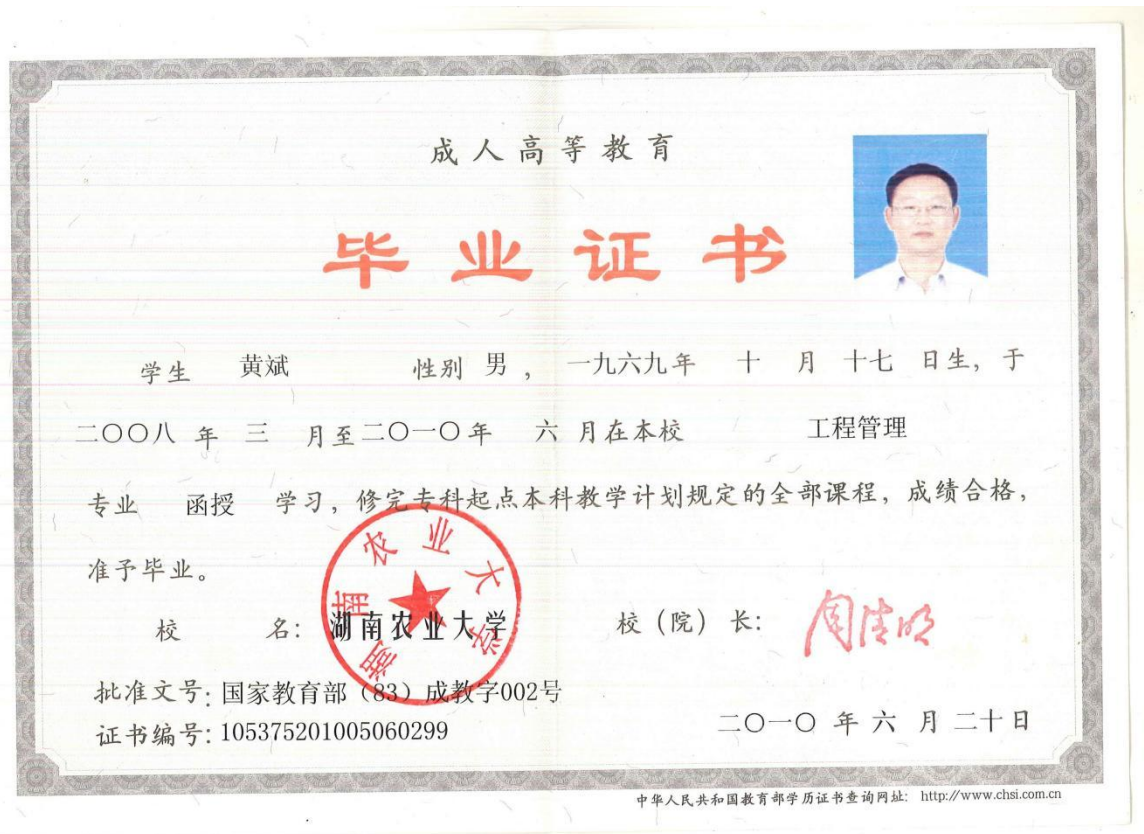 成人高等教育
毕业证书
学生 黄斌 性别 男，一九六九年 十 月 十七 日生，于
二〇〇八 年 三 月至二〇一〇年 六 月在本校 工程管理
专业 函授 学习，修完专科起点本科教学计划规定的全部课程，成绩合格，
准予毕业。
校 名：湖南农业大学 校（院）长：周清明
湖南农业大学
批准文号：国家教育部（83）成教字002号
证书编号：105375201005060299
二〇一〇 年 六 月 二十日
中华人民共和国教育部学历证书查询网址：http://www.chsi.com.cn